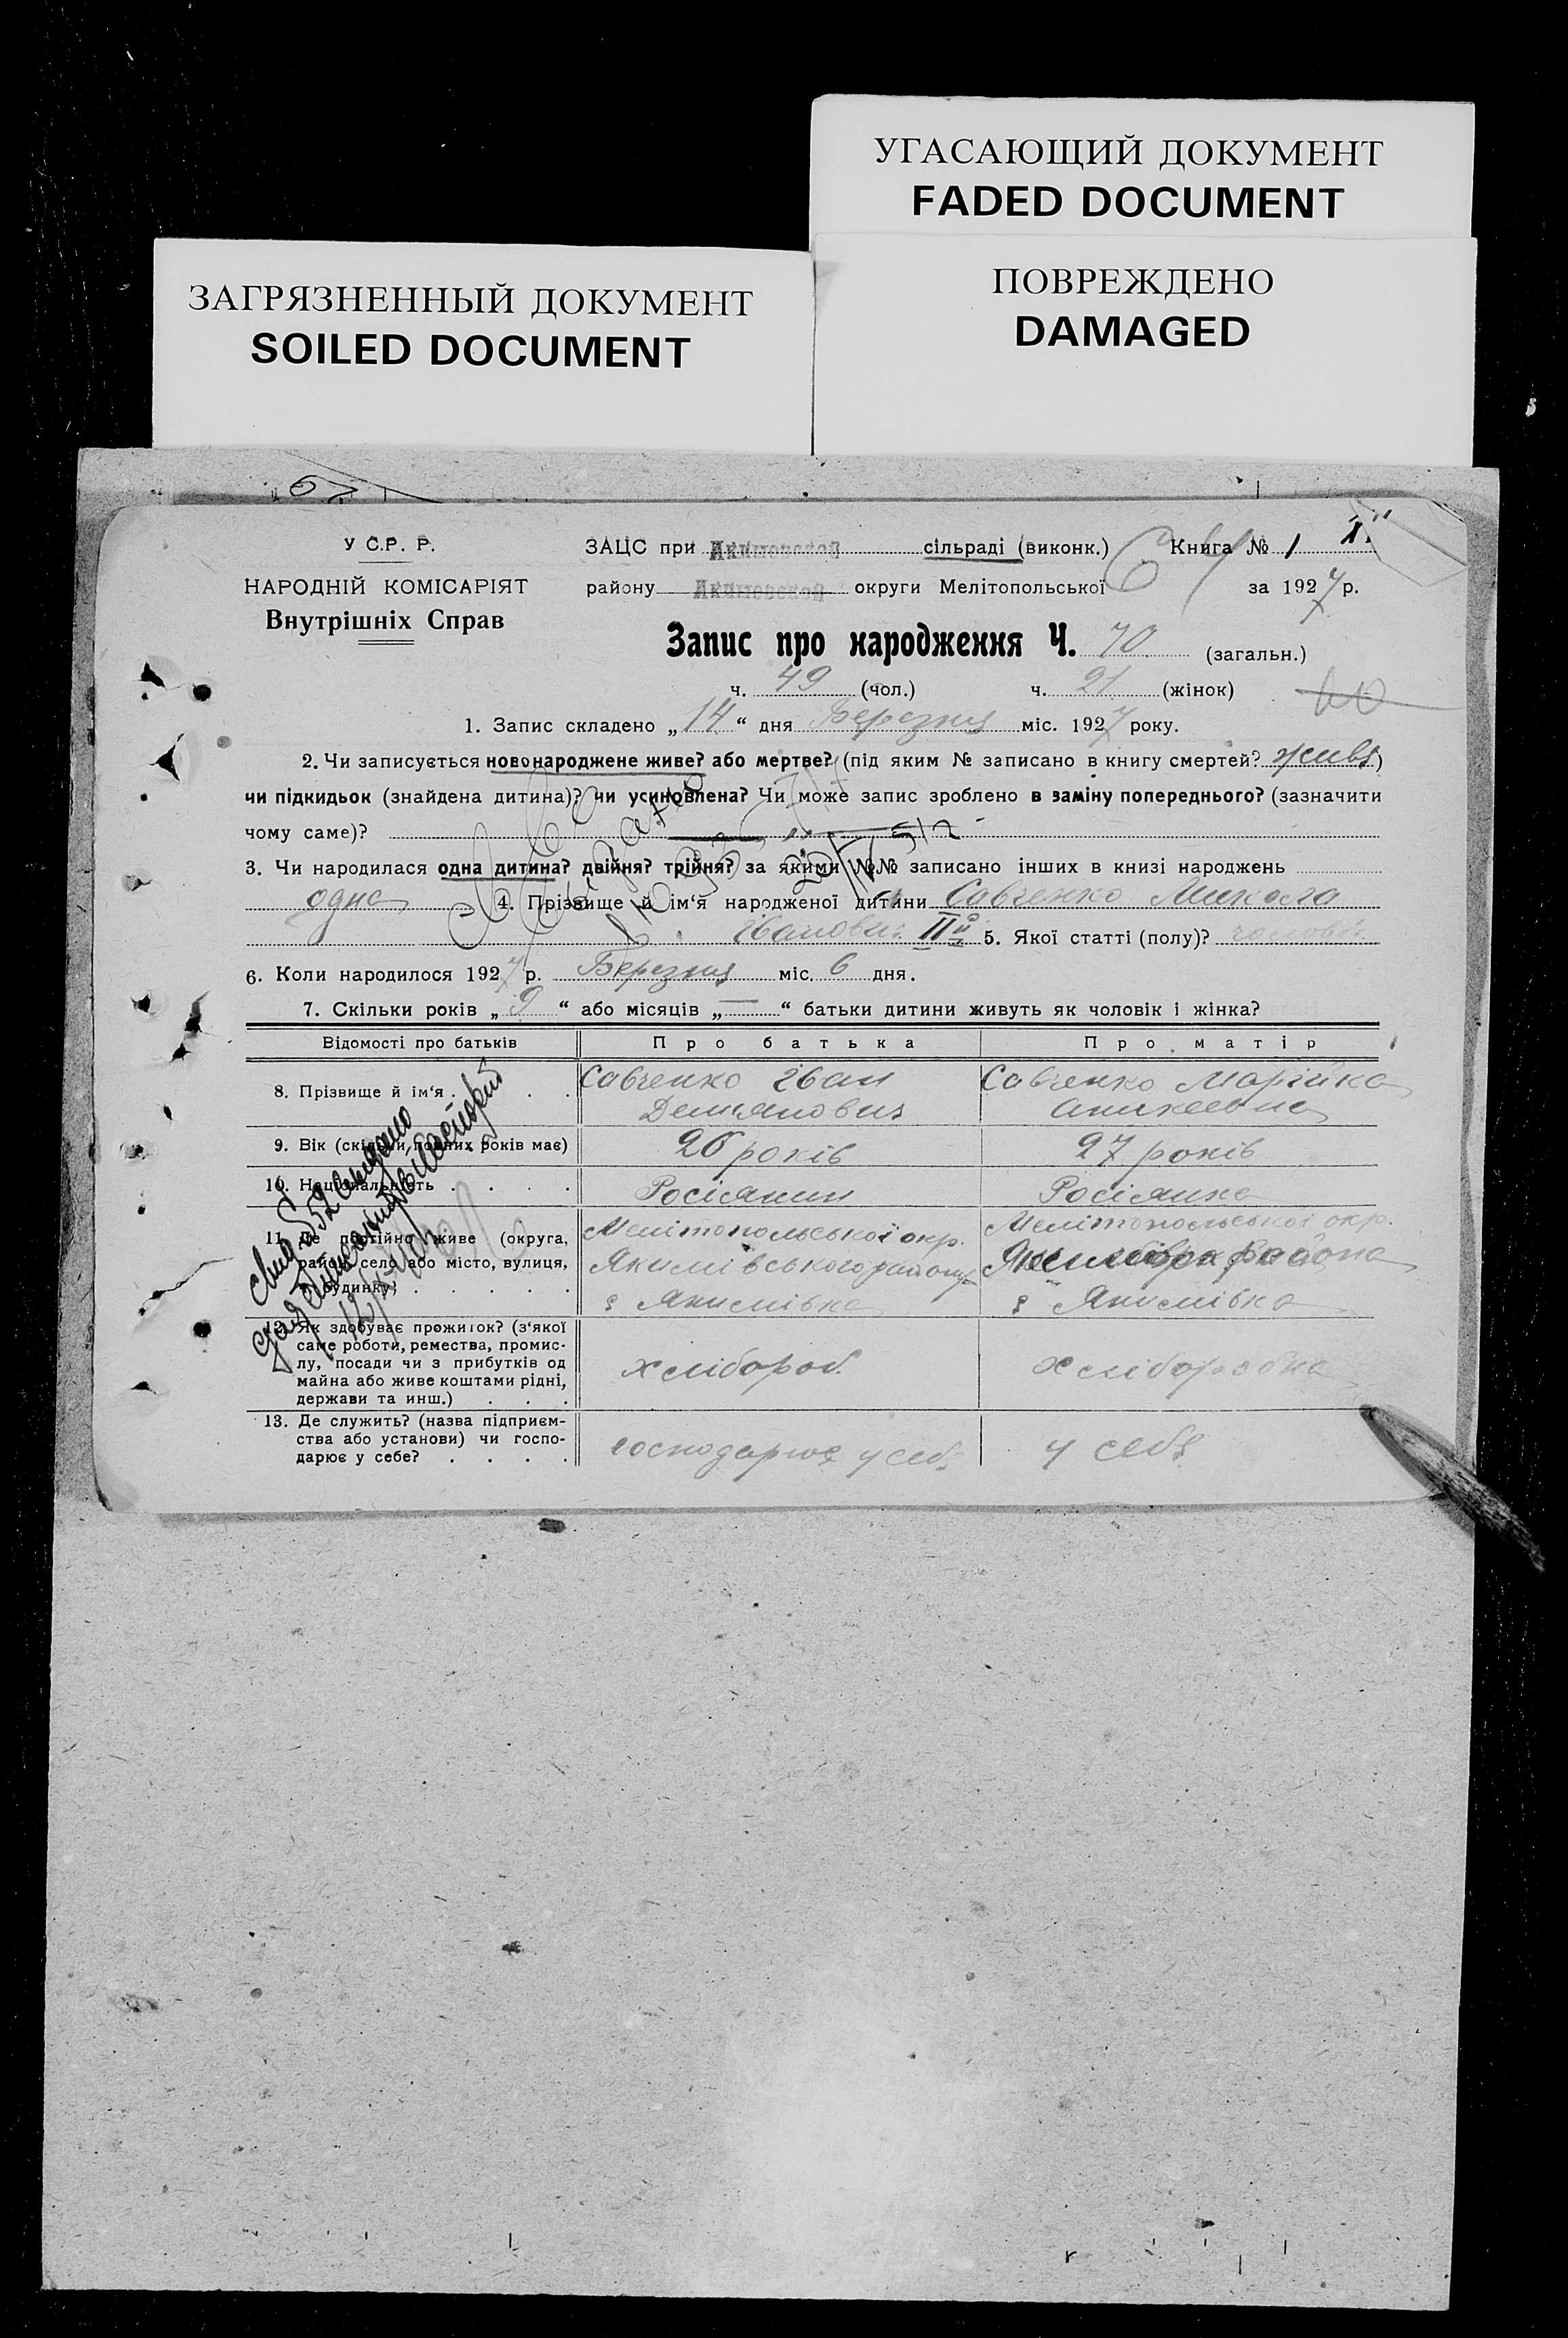 УГАСАЮЩИЙ ДОКУМЕНТ
FADED DOCUMENT
ЗАГРЯЗНЕННЫЙ ДОКУМЕНТ
SOILED DOCUMENT
ПОВРЕЖДЕНО
DAMAGED
У С.Р. Р.
НАРОДНІЙ КОМІСАРІЯТ
Внутрішніх Справ
ЗАЦС при Якимовской сільраді (виконк.) Книга № 1
району Якимовской округи Мелітопольської за 1927 р.
Запис про народження Ч. 70 (загальн.)
ч. 49 (чол.) ч. 21 (жінок)
1. Запис складено „14“ дня Березня міс. 1927 року.
2. Чи записується новонароджене живе? або мертве? (під яким № записано в книгу смертей? живе)
чи підкидьок (знайдена дитина)? чи усиновлена? Чи може запис зроблено в заміну попереднього? (зазначити
чому саме)?
3. Чи народилася одна дитина? двійня? трійня? за якими №№ записано інших в книзі народжень
одна 4. Прізвище й ім'я народженої дитини Савченко Микола
Іванович ІІй 5. Якої статті (полу)? чоловіч.
6. Коли народилося 1927 р. Березня міс. 6 дня.
7. Скільки років „9“ або місяців „—“ батьки дитини живуть як чоловік і жінка?
Відомості про батьків Про батька Про матір
8. Прізвище й ім'я . . . . Савченко Іван Савченко Марійка
Демянович
9. Вік (скільки, повних років має) 26 років 27 років
10. Національність . . . . Росіянин Росіянка
11. Де постійно живе (округа, Мелітопольської окр. Мелітопольської окр.
район, село або місто, вулиця, Якимівського району Якимівск района
будинку) . . . . . с Якимівка с Якимівка
12. Як здобуває прожиток? (з'якої
саме роботи, ремества, промис-
лу, посади чи з прибутків од хлібороб. хліборобка
майна або живе коштами рідні,
держави та инш.) . . .
13. Де служить? (назва підприєм-
ства або установи) чи госпо- господарює у себе у себе
дарює у себе? . . . .